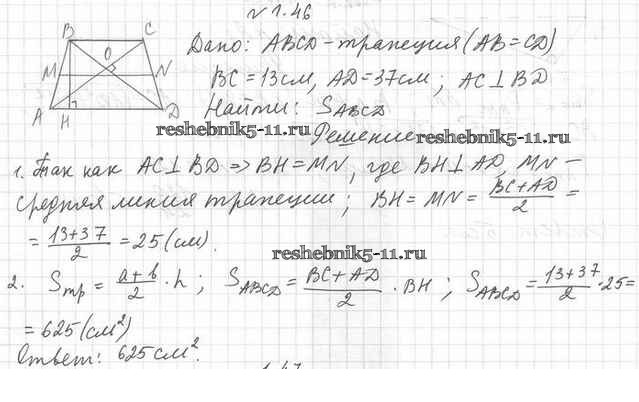 № 1.46
Дано: ABCD - трапеция (AB = CD)
BC = 13 см, AD = 37 см; AC ⊥ BD
Найти: S_ABCD
reshebnik5-11.ru
Решение
reshebnik5-11.ru
B C
O
M N
A H D
1. Так как AC ⊥ BD => BH = MN, где BH ⊥ AD, MN -
средняя линия трапеции; BH = MN = (BC + AD)/2 =
= (13+37)/2 = 25 (см).
reshebnik5-11.ru
2. S_тр = (a+b)/2 · h; S_ABCD = (BC + AD)/2 · BH; S_ABCD = (13+37)/2 · 25 =
= 625 (см²)
Ответ: 625 см².
1.47